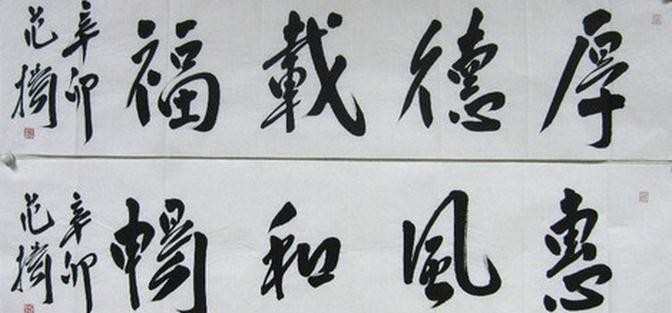 厚德載福
辛卯
范
惠風和暢
辛卯
范